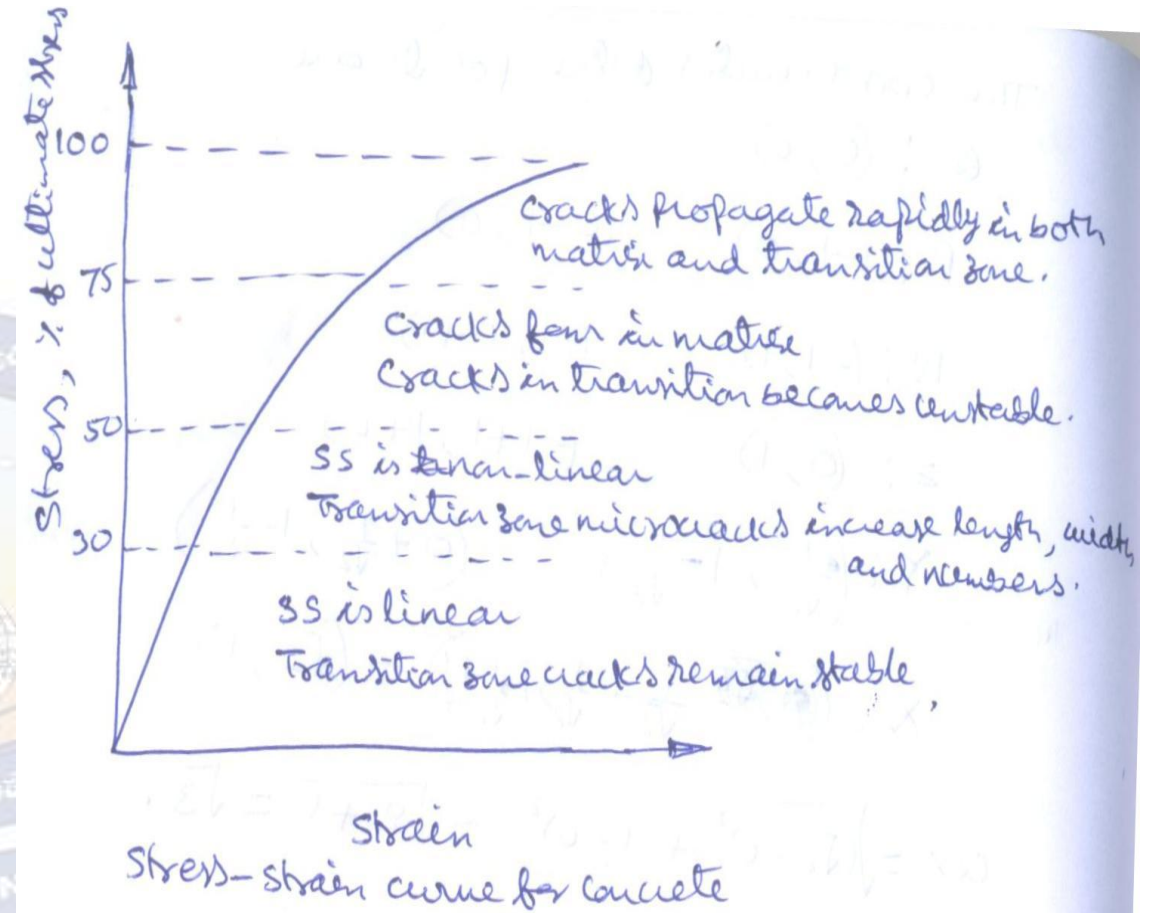 Stress, % of ultimate stress
100
Cracks propagate rapidly in both
matrix and transition zone.
75
Cracks form in matrix
Cracks in transition becomes unstable.
50
SS is non-linear
Transition zone microcracks increase length, width
and numbers.
30
SS is linear
Transition zone cracks remain stable,
Strain
Stress-strain curve for concrete